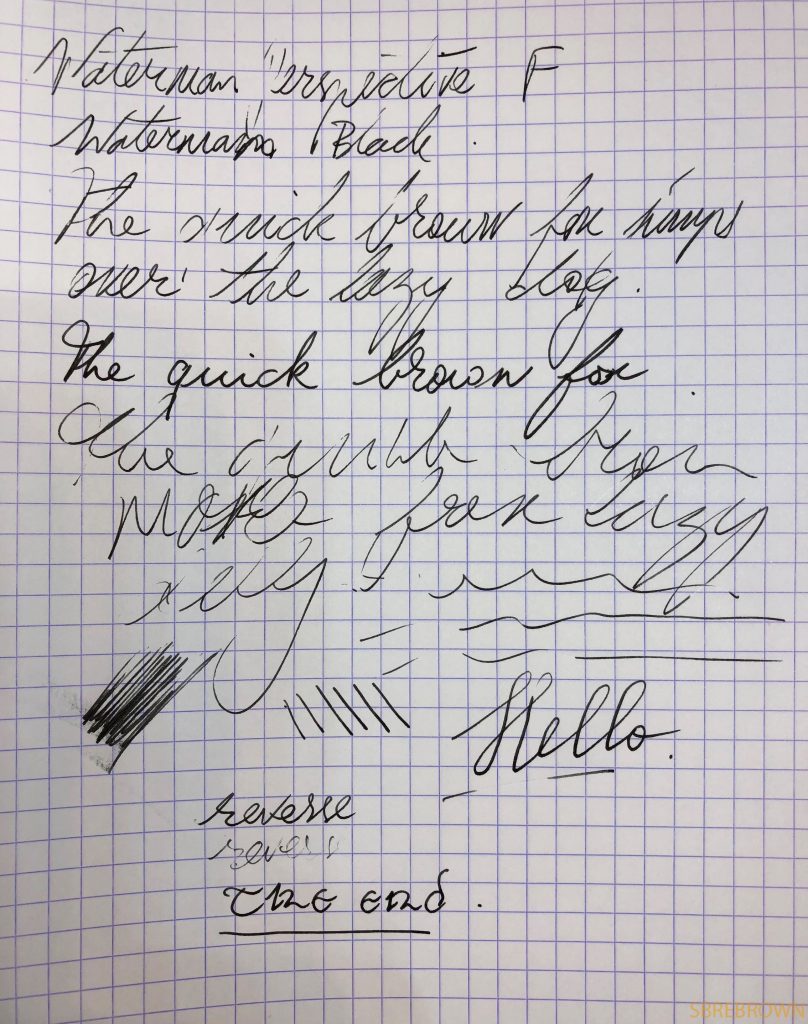 Waterman Perspective F
Waterman Black.
The quick brown fox jumps
over the lazy dog.
The quick brown fox.
The quick brown
lazy
Hello.
reverse
reverse
The end.
SBREBROWN